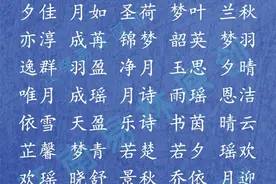 夕佳 月如 圣荷 梦叶 兰秋
亦淳 成苒 锦梦 韶英 梦羽
逸群 羽盈 净月 玉思 夕晴
唯月 成瑶 月诗 雨瑶 恩洁
依雪 天盈 乐诗 书茵 晴云
芷馨 梦青 若楚 若夕 瑶欢
欢瑶 晓舒 景秋 乔依 月迎